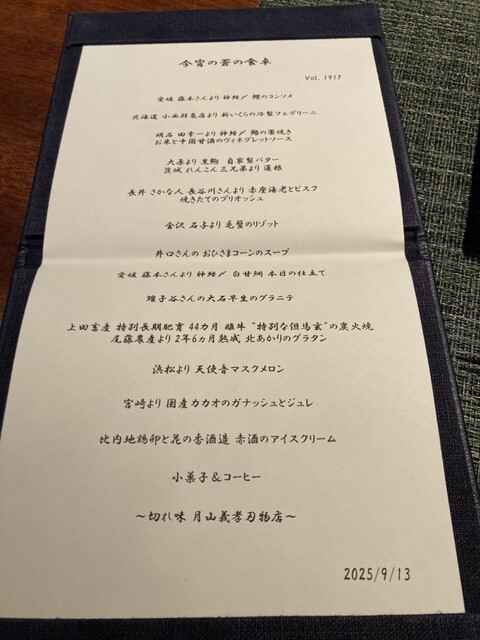 今宵の蒼の食卓
Vol. 1917
愛媛 藤本さんより 神経〆 鱧のコンソメ
北海道 小西鮮魚店より 新いくらの冷製フェデリーニ
明石 田幸一より 神経〆 鰆の藁焼き
お米と中国甘酒のヴィネグレットソース
大原より 黒鮑 自家製バター
茨城 れんこん三兄弟より 蓮根
長井 さかな人 長谷川さんより 赤座海老とビスク
焼きたてのブリオッシュ
金沢 石与より 毛蟹のリゾット
井口さんの おひさまコーンのスープ
愛媛 藤本さんより 神経〆 白甘鯛 本日の仕立て
雉子谷さんの大石早生のグラニテ
上田畜産 特別長期肥育 44カ月 雌牛 "特別な但馬玄"の炭火焼
尾藤農産より 2年6カ月熟成 北あかりのグラタン
浜松より 天使音マスクメロン
宮崎より 国産カカオのガナッシュとジュレ
比内地鶏卵と花の香酒造 赤酒のアイスクリーム
小菓子&コーヒー
〜切れ味 月山義孝刃物店〜
2025/9/13